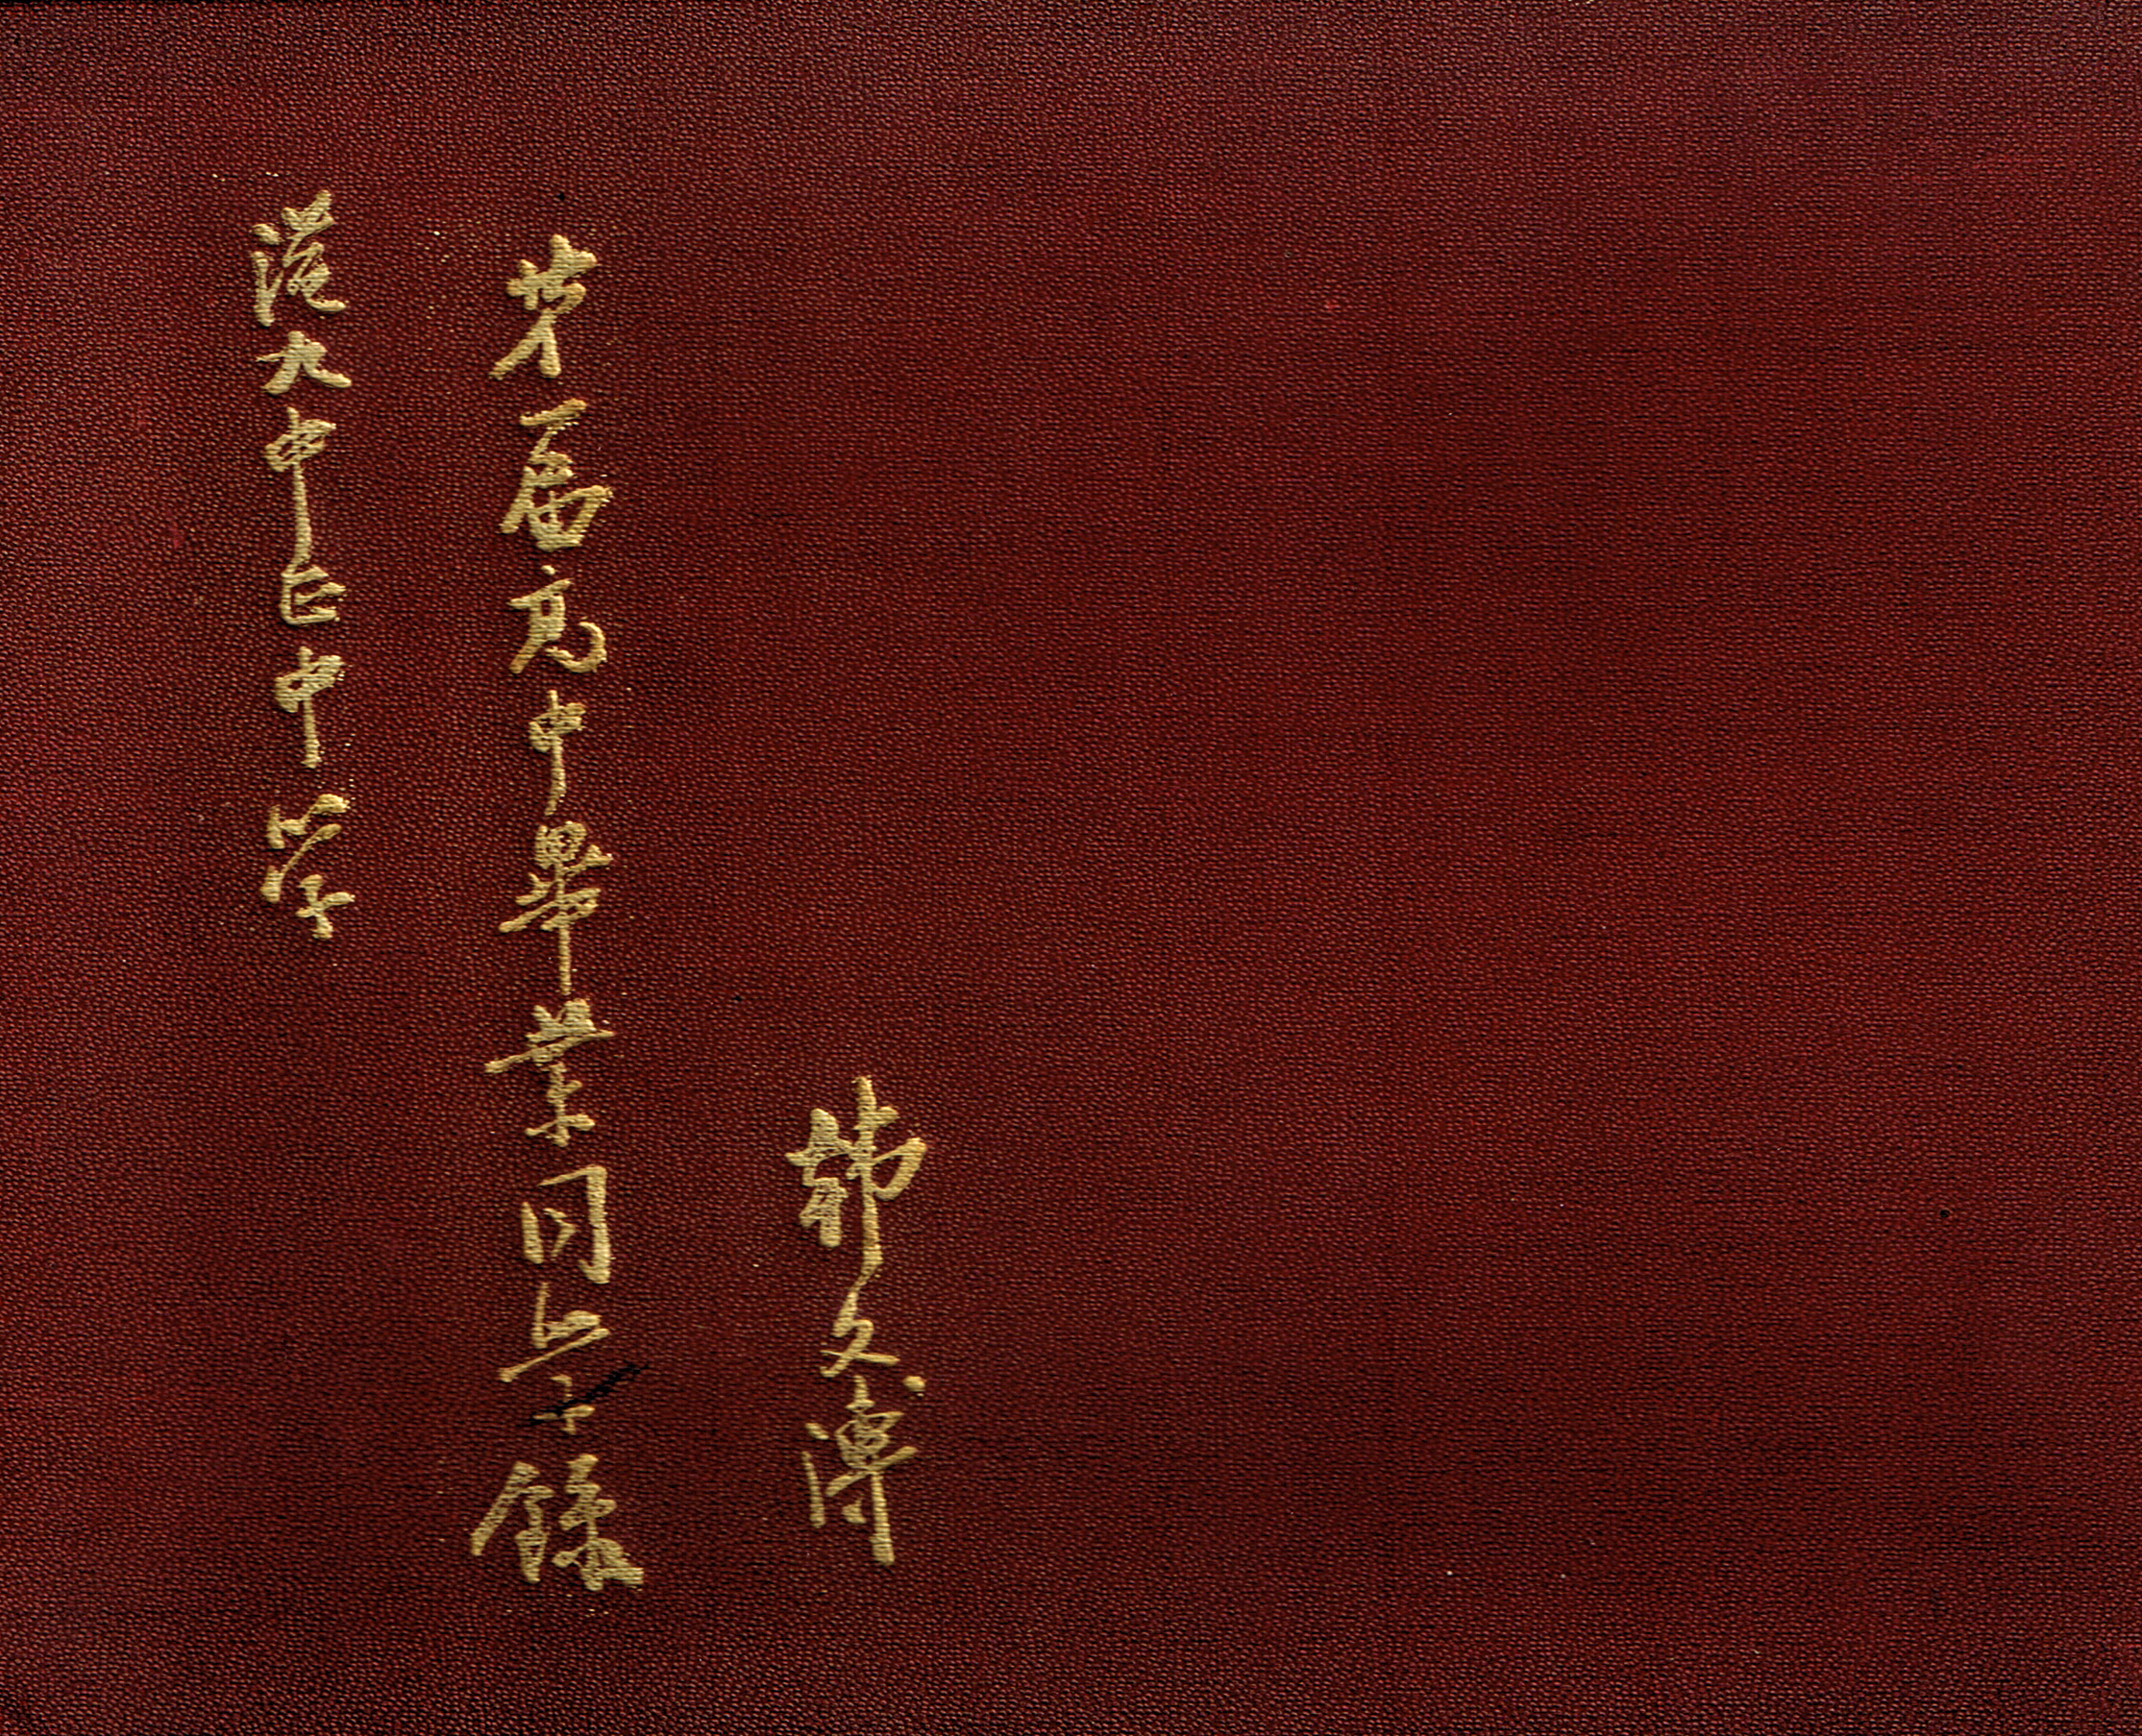 港九中正中學
第一屆高中畢業同學錄
韓文溥